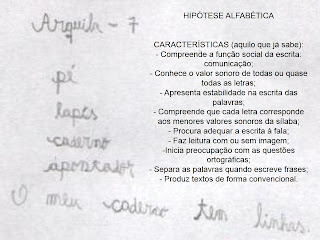 HIPÓTESE ALFABÉTICA
CARACTERÍSTICAS (aquilo que já sabe):
- Compreende a função social da escrita: comunicação;
- Conhece o valor sonoro de todas ou quase todas as letras;
- Apresenta estabilidade na escrita das palavras;
- Compreende que cada letra corresponde aos menores valores sonoros da sílaba;
- Procura adequar a escrita à fala;
- Faz leitura com ou sem imagem;
-Inicia preocupação com as questões ortográficas;
- Separa as palavras quando escreve frases;
- Produz textos de forma convencional.
- 7
pé
lapes
caderno
apontador
O meu caderno tem linhas.